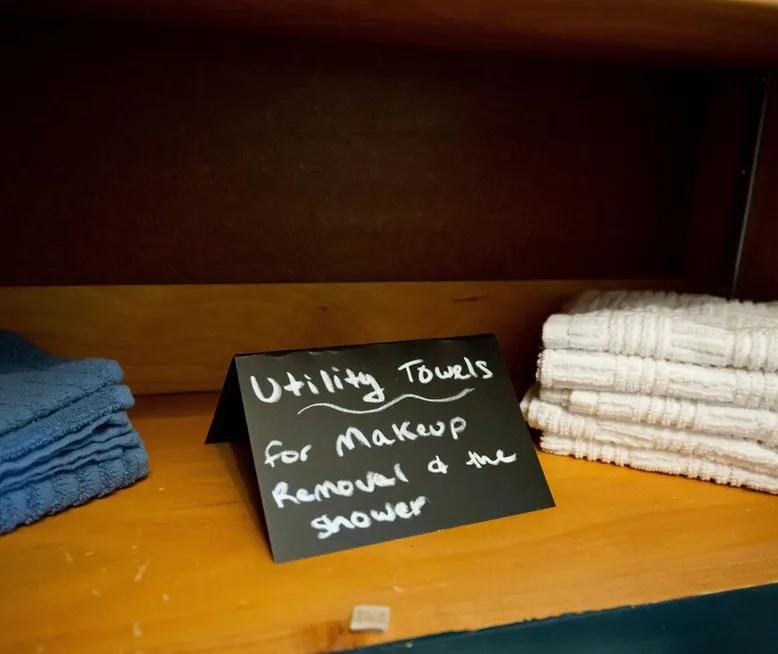 Utility Towels
for Makeup
Removal & the
shower